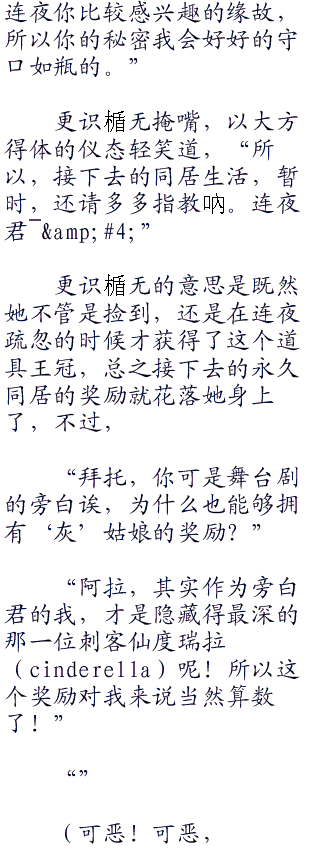 连夜你比较感兴趣的缘故，
所以你的秘密我会好好的守
口如瓶的。”
更识楯无掩嘴，以大方
得体的仪态轻笑道，“所
以，接下去的同居生活，暂
时，还请多多指教呐。连夜
君¯&amp;#4;”
更识楯无的意思是既然
她不管是捡到，还是在连夜
疏忽的时候才获得了这个道
具王冠，总之接下去的永久
同居的奖励就花落她身上
了，不过，
“拜托，你可是舞台剧
的旁白诶，为什么也能够拥
有‘灰’姑娘的奖励？”
“阿拉，其实作为旁白
君的我，才是隐藏得最深的
那一位刺客仙度瑞拉
（cinderella）呢！所以这
个奖励对我来说当然算数
了！”
“”
（可恶！可恶，